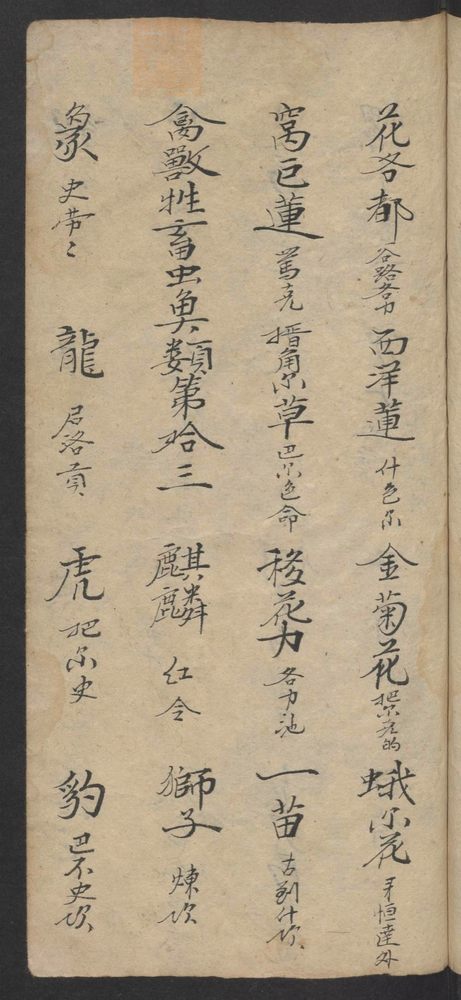 花各都 谷路各力 西洋蓮 什色尔 金菊花 把尔的 蛾尔花 牙恒達外
窩巴蓮 篤克 搢角尔草 巴尔色命 移花力 各力池 一苗 古到什坎
禽獸牲畜虫魚類第拾三 麒麟 红令 獅子 煉坎
象 史带〻 龍 居洛貢 虎 把尔史 豹 巴不史坎